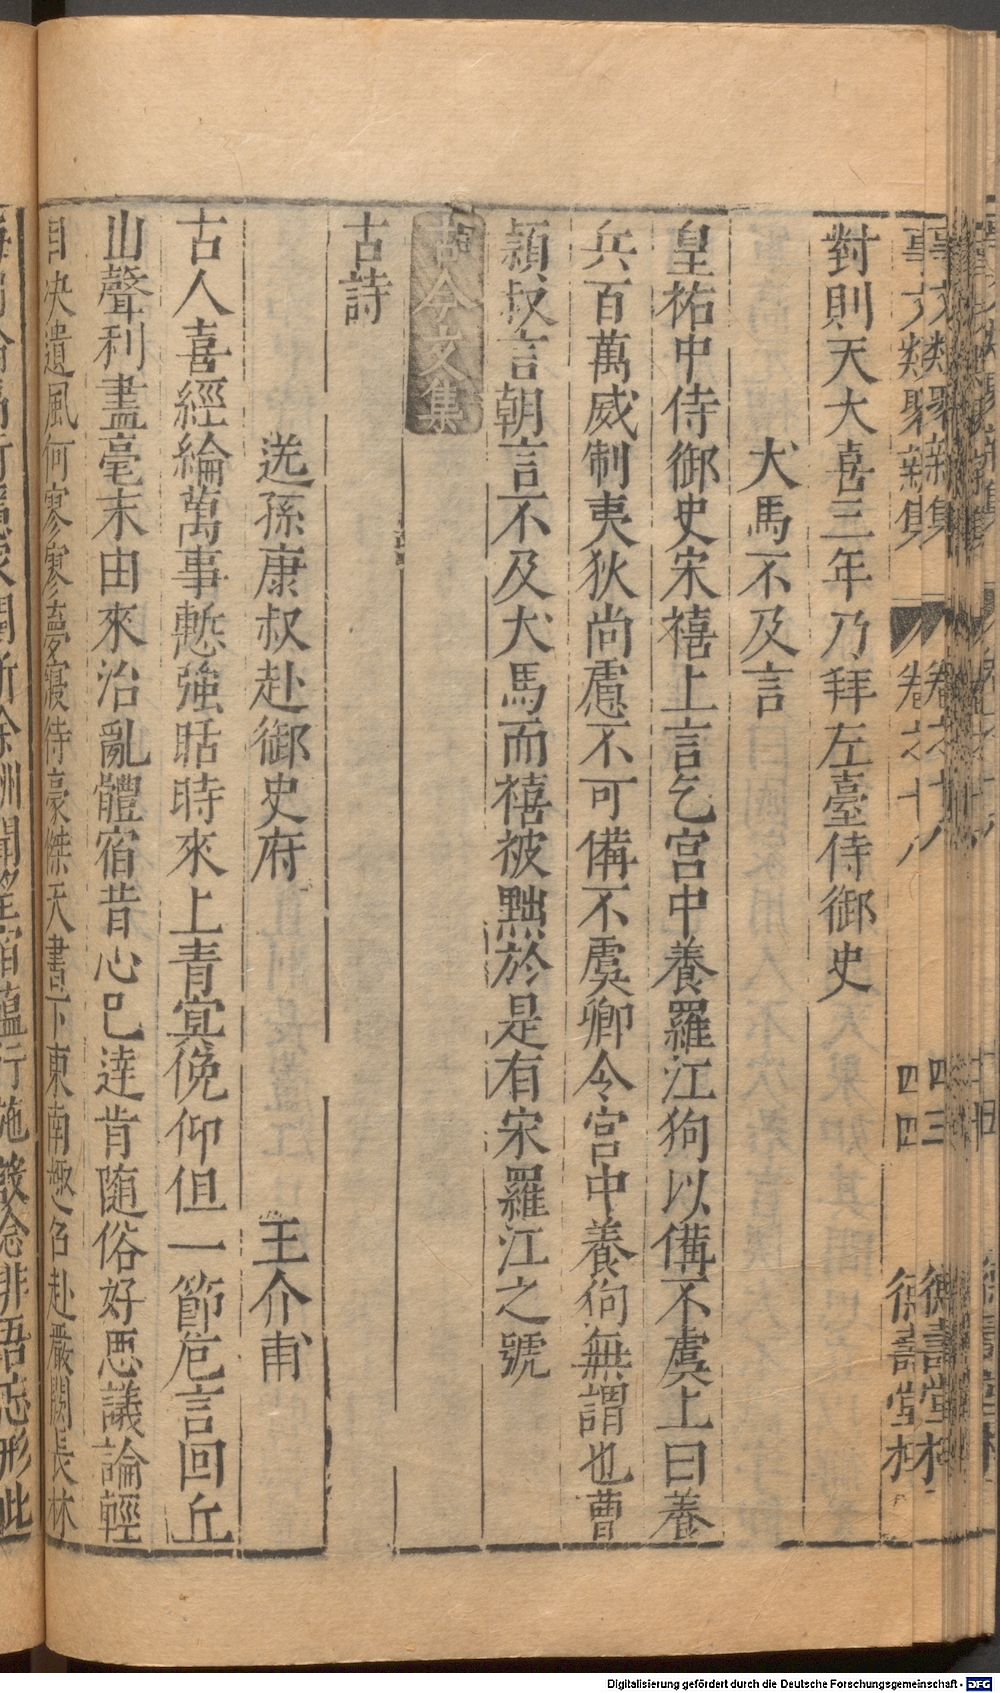 事文類聚新集 卷之十八 四四 德壽堂村
對則天大喜三年乃拜左臺侍御史
犬馬不及言
皇祐中侍御史宋禧上言乞宮中養羅江狗以備不虞上曰養
兵百萬威制夷狄尚慮不可備不虞卿令宮中養狗無謂也曹
頴叔言朝言不及犬馬而禧被黜於是有宋羅江之號
古今文集
古詩
送孫康叔赴御史府 王介甫
古人喜經綸萬事慙強聒時來上青冥俛仰但一節危言回丘
山聲利盡毫末由來治亂體宿昔心已達肯随俗好惡議論輕
自決遺風何寥寥夢寢待豪傑天書下東南趣名赴嚴闕長林
Digitalisierung gefördert durch die Deutsche Forschungsgemeinschaft - DFG